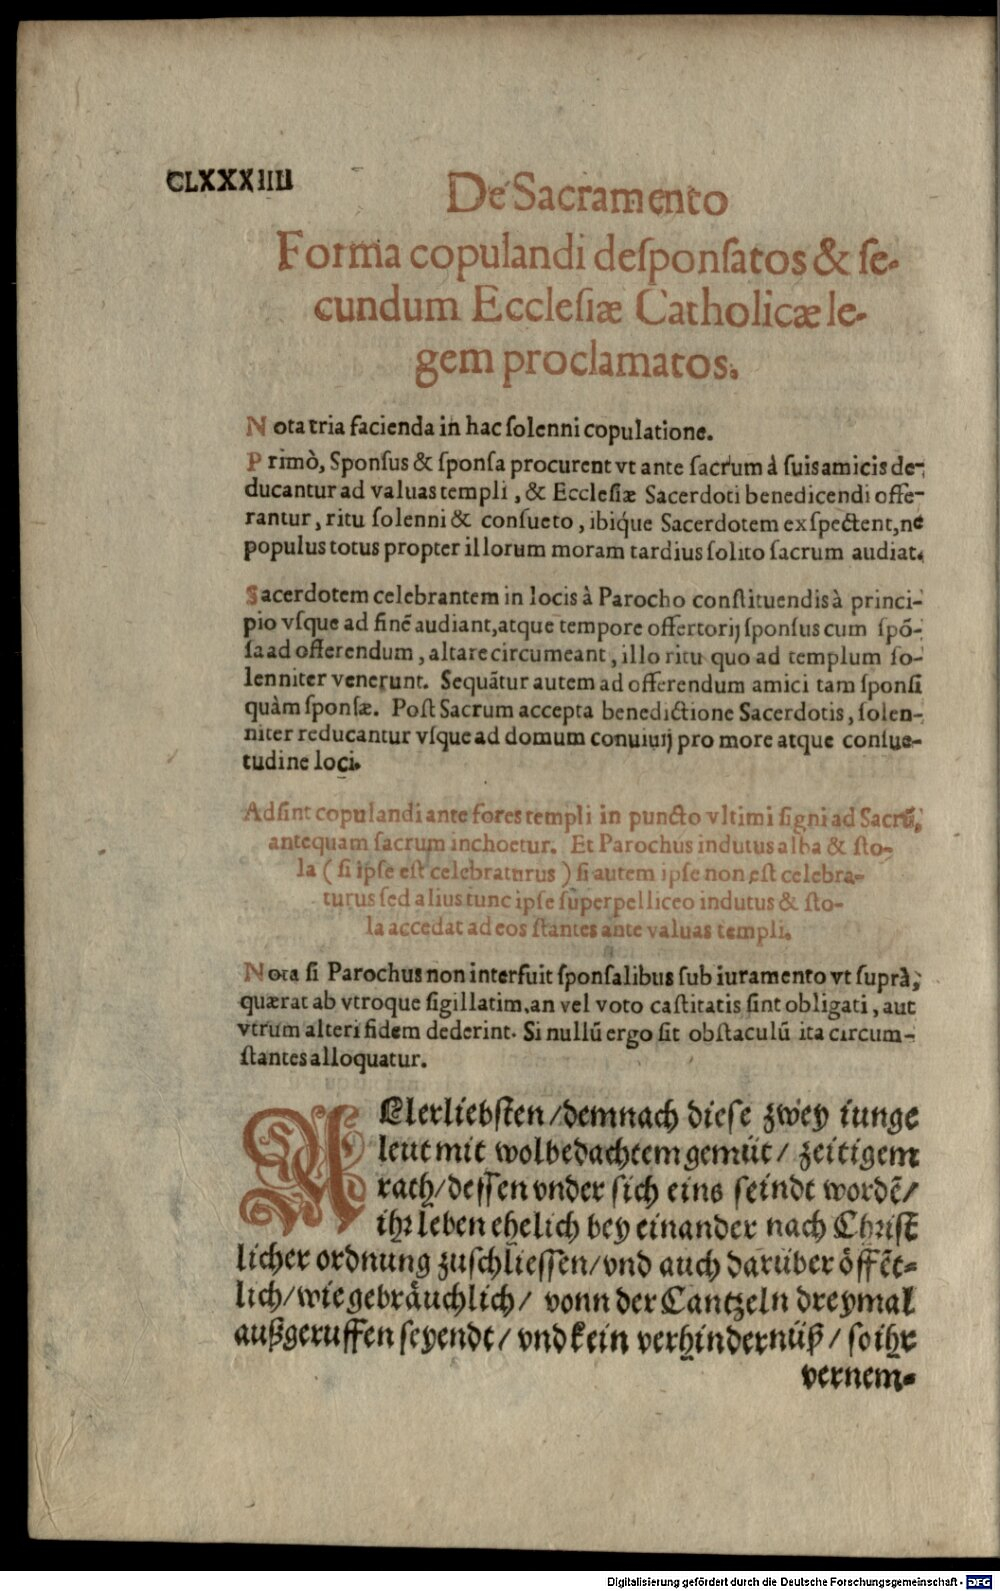 CLXXXIIII
De Sacramento
Forma copulandi desponsatos & se-
cundum Ecclesiæ Catholicæ le-
gem proclamatos.
Nota tria facienda in hac solenni copulatione.
Primò, Sponsus & sponsa procurent vt ante sacrum à suis amicis de-
ducantur ad valuas templi, & Ecclesiæ Sacerdoti benedicendi offe-
rantur, ritu solenni & consueto, ibiq́ue Sacerdotem exspectent, ne
populus totus propter illorum moram tardius solito sacrum audiat.
Sacerdotem celebrantem in locis à Parocho constituendis à princi-
pio vsque ad finẽ audiant, atque tempore offertorij sponsus cum spõ-
sa ad offerendum, altare circumeant, illo ritu quo ad templum so-
lenniter venerunt. Sequãtur autem ad offerendum amici tam sponsi
quàm sponsæ. Post Sacrum accepta benedictione Sacerdotis, solen-
niter reducantur vsque ad domum conuiuij pro more atque consue-
tudine loci.
Adsint copulandi ante fores templi in puncto vltimi signi ad Sacrũ,
antequam sacrum inchoetur. Et Parochus indutus alba & sto-
la (si ipse est celebraturus) si autem ipse non est celebra-
turus sed alius tunc ipse superpelliceo indutus & sto-
la accedat ad eos stantes ante valuas templi.
Nota si Parochus non interfuit sponsalibus sub iuramento vt suprà,
quærat ab vtroque sigillatim, an vel voto castitatis sint obligati, aut
vtrum alteri fidem dederint. Si nullũ ergo sit obstaculũ ita circum-
stantes alloquatur.
ALlerliebsten/demnach diese zwey iunge
leut mit wolbedachtem gemüt/ zeitigem
rath/dessen vnder sich eins seindt wordẽ/
ihr leben ehelich bey einander nach Christ
licher ordnung zuschliessen/vnd auch darüber öffẽt-
lich/wie gebräuchlich/ vonn der Cantzeln dreymal
außgeruffen seyendt/ vnd kein verhindernüß/ so ihr
vernem-
Digitalisierung gefördert durch die Deutsche Forschungsgemeinschaft - DFG